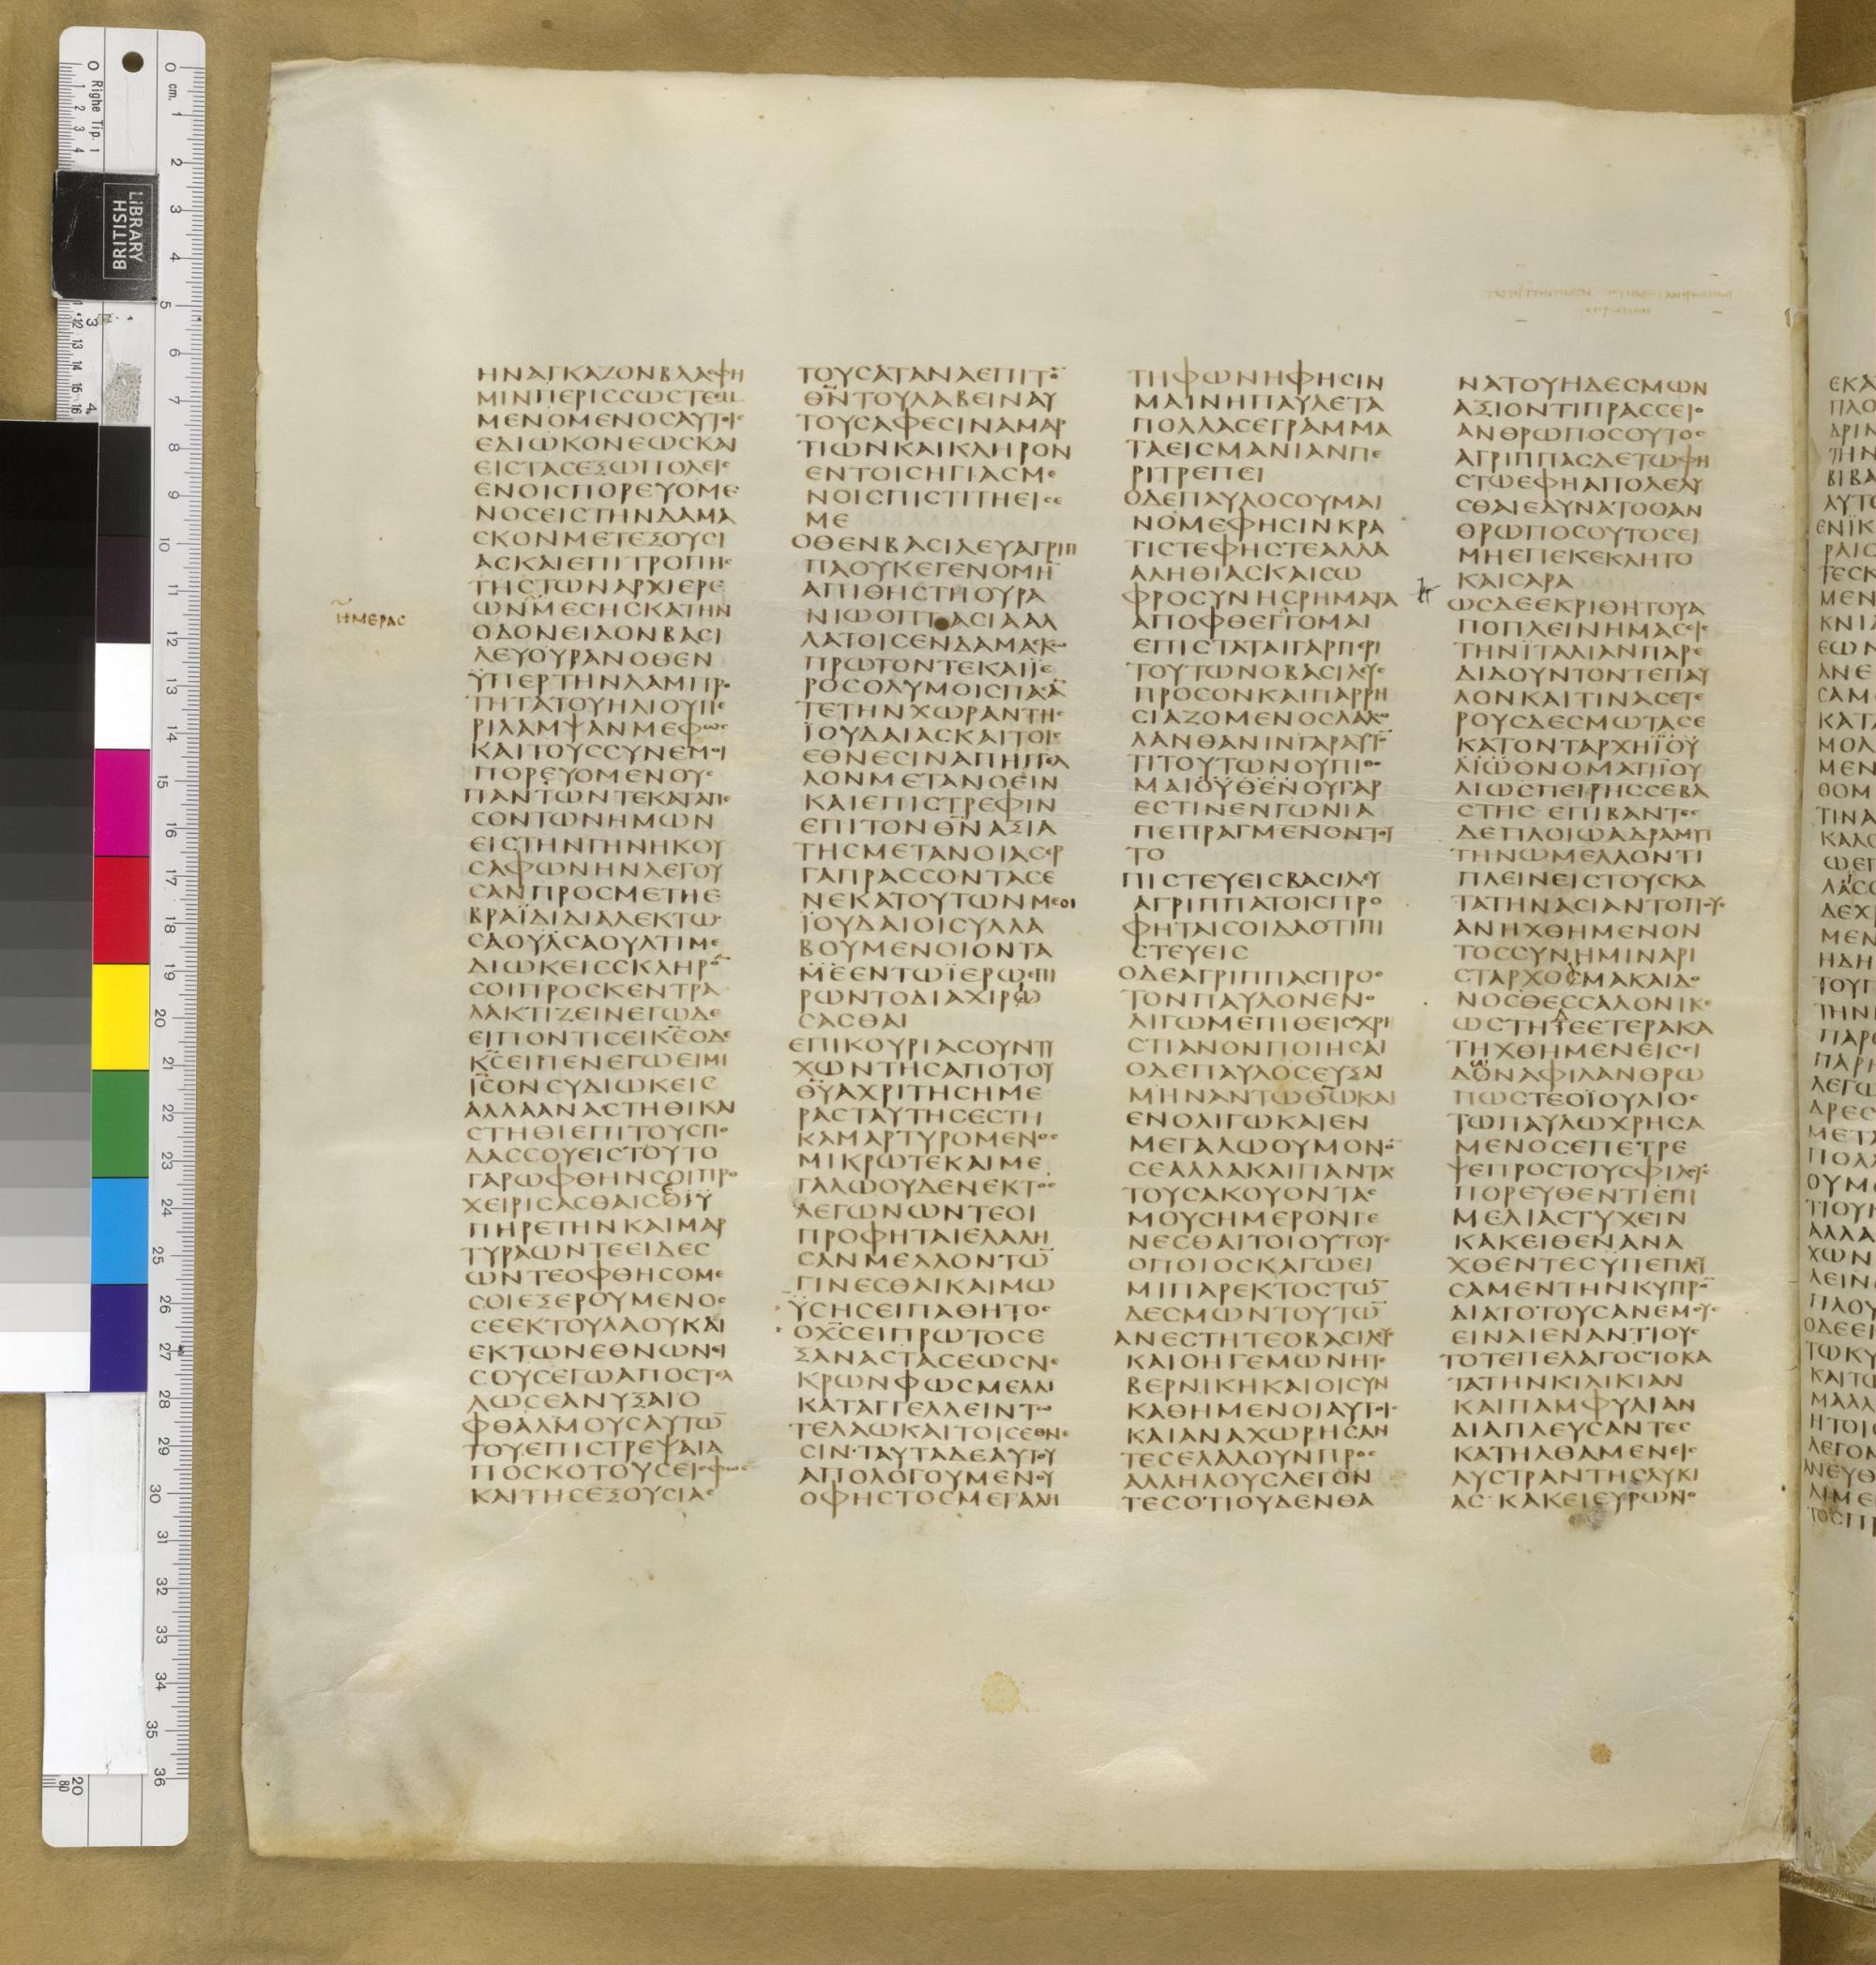 ΗΝΑΓΚΑΖΟΝΒΛΑϹΦΗ
ΜΙΝΠΕΡΙϹϹΩϹΤΕΕΜ
ΜΕΝΟΜΕΝΟϹΑΥΤΟΙϹ
ΕΔΙΩΚΟΝΕΩϹΚΑΙ
ΕΙϹΤΑϹΕΞΩΠΟΛΕΙϹ
ΕΝΟΙϹΠΟΡΕΥΟΜΕ
ΝΟϹΕΙϹΤΗΝΔΑΜΑ
ϹΚΟΝΜΕΤΕΞΟΥϹΙ
ΑϹΚΑΙΕΠΙΤΡΟΠΗϹ
ΤΗϹΤΩΝΑΡΧΙΕΡΕ
ΩΝΜΕϹΗϹΚΑΤΗΝ
ΗΜΕΡΑϹ
ΟΔΟΝΕΙΔΟΝΒΑϹΙ
ΛΕΥΟΥΡΑΝΟΘΕΝ
ΫΠΕΡΤΗΝΛΑΜΠΡΟ
ΤΗΤΑΤΟΥΗΛΙΟΥΠΕ
ΡΙΛΑΜΨΑΝΜΕΦΩϹ
ΚΑΙΤΟΥϹϹΥΝΕΜΟΙ
ΠΟΡΕΥΟΜΕΝΟΥϹ
ΠΑΝΤΩΝΤΕΚΑΤΑΠΕ
ϹΟΝΤΩΝΗΜΩΝ
ΕΙϹΤΗΝΓΗΝΗΚΟΥ
ϹΑΦΩΝΗΝΛΕΓΟΥ
ϹΑΝΠΡΟϹΜΕΤΗΕ
ΒΡΑΪΔΙΔΙΑΛΕΚΤΩ
ϹΑΟΥΛϹΑΟΥΛΤΙΜΕ
ΔΙΩΚΕΙϹϹΚΛΗΡΟ̅
ϹΟΙΠΡΟϹΚΕΝΤΡΑ
ΛΑΚΤΙΖΕΙΝΕΓΩΔΕ
ΕΙΠΟΝΤΙϹΕΙΚ̅Ε̅ΟΔΕ
Κ̅Ϲ̅ΕΙΠΕΝΕΓΩΕΙΜΙ
Ι̅Ϲ̅ΟΝϹΥΔΙΩΚΕΙϹ
ΑΛΛΑΑΝΑϹΤΗΘΙΚΑΙ
ϹΤΗΘΙΕΠΙΤΟΥϹΠΟ
ΔΑϹϹΟΥΕΙϹΤΟΥΤΟ
ΓΑΡΩΦΘΗΝϹΟΙΠΡΟ
ΧΕΙΡΙϹΑϹΘΑΙϹΕΫ
ΠΗΡΕΤΗΝΚΑΙΜΑΡ
ΤΥΡΑΩΝΤΕΕΙΔΕϹ
ΩΝΤΕΟΦΘΗϹΟΜΕ
ϹΟΙΕΞΕΡΟΥΜΕΝΟϹ
ϹΕΕΚΤΟΥΛΑΟΥΚΑΙ
ΕΚΤΩΝΕΘΝΩΝΕΙ
ϹΟΥϹΕΓΩΑΠΟϹΤΕΛ
ΛΩϹΕΑΝΥΞΑΙΟ
ΦΘΑΛΜΟΥϹΑΥΤΩ̅
ΤΟΥΕΠΙϹΤΡΕΨΑΙΑ
ΠΟϹΚΟΤΟΥϹΕΙϹΦΩϹ
ΚΑΙΤΗϹΕΞΟΥϹΙΑϹ
ΤΟΥϹΑΤΑΝΑΕΠΙΤΟ̅
Θ̅Ν̅ΤΟΥΛΑΒΕΙΝΑΥ
ΤΟΥϹΑΦΕϹΙΝΑΜΑΡ
ΤΙΩΝΚΑΙΚΛΗΡΟΝ
ΕΝΤΟΙϹΗΓΙΑϹΜΕ
ΝΟΙϹΠΙϹΤΙΤΗΕΙϹΕ
ΜΕ
ΟΘΕΝΒΑϹΙΛΕΥΑΓΡΙΠ
ΠΑΟΥΚΕΓΕΝΟΜΗ̅
ΑΠΙΘΗϹΤΗΟΥΡΑ
ΝΙΩΟΠΤΑϹΙΑΑΛ
ΛΑΤΟΙϹΕΝΔΑΜΑϹΚΩ
ΠΡΩΤΟΝΤΕΚΑΙΪΕ
ΡΟϹΟΛΥΜΟΙϹΠΑϹΑ̅
ΤΕΤΗΝΧΩΡΑΝΤΗϹ
ΪΟΥΔΑΙΑϹΚΑΙΤΟΙϹ
ΕΘΝΕϹΙΝΑΠΗΓΓΕΛ
ΛΟΝΜΕΤΑΝΟΕΙΝ
ΚΑΙΕΠΙϹΤΡΕΦΙΝ
ΕΠΙΤΟΝΘ̅Ν̅ΑΞΙΑ
ΤΗϹΜΕΤΑΝΟΙΑϹΕΡ
ΓΑΠΡΑϹϹΟΝΤΑϹΕ
ΝΕΚΑΤΟΥΤΩΝΜΕΟΙ
ΪΟΥΔΑΙΟΙϹΥΛΛΑ
ΒΟΥΜΕΝΟΙΟΝΤΑ
ΜΕΕΝΤΩΪΕΡΩΕΠΙ
ΡΩΝΤΟΔΙΑΧΙΡΩ
ϹΑϹΘΑΙ
ΕΠΙΚΟΥΡΙΑϹΟΥΝΤΥ
ΧΩΝΤΗϹΑΠΟΤΟΥ
Θ̅Υ̅ΑΧΡΙΤΗϹΗΜΕ
ΡΑϹΤΑΥΤΗϹΕϹΤΗ
ΚΑΜΑΡΤΥΡΟΜΕΝΟϹ
ΜΙΚΡΩΤΕΚΑΙΜΕ
ΓΑΛΩΟΥΔΕΝΕΚΤΟϹ
ΛΕΓΩΝΩΝΤΕΟΙ
ΠΡΟΦΗΤΑΙΕΛΑΛΗ
ϹΑΝΜΕΛΛΟΝΤΩ̅
ΓΙΝΕϹΘΑΙΚΑΙΜΩ
ΫϹΗϹΕΙΠΑΘΗΤΟϹ
ΟΧ̅Ϲ̅ΕΙΠΡΩΤΟϹΕ
ΞΑΝΑϹΤΑϹΕΩϹΝΕ
ΚΡΩΝΦΩϹΜΕΛΛΙ
ΚΑΤΑΓΓΕΛΛΕΙΝΤΩ
ΤΕΛΑΩΚΑΙΤΟΙϹΕΘΝΕ
ϹΙΝ·ΤΑΥΤΑΔΕΑΥΤΟΥ
ΑΠΟΛΟΓΟΥΜΕΝΟΥ
ΟΦΗϹΤΟϹΜΕΓΑΛΗ
ΤΗΦΩΝΗΦΗϹΙΝ
ΜΑΙΝΗΠΑΥΛΕΤΑ
ΠΟΛΛΑϹΕΓΡΑΜΜΑ
ΤΑΕΙϹΜΑΝΙΑΝΠΕ
ΡΙΤΡΕΠΕΙ
ΟΔΕΠΑΥΛΟϹΟΥΜΑΙ
ΝΟΜΕΦΗϹΙΝΚΡΑ
ΤΙϹΤΕΦΗϹΤΕΑΛΛΑ
ΑΛΗΘΙΑϹΚΑΙϹΩ
ΦΡΟϹΥΝΗϹΡΗΜΑΤΑ
ΑΠΟΦΘΕΓΓΟΜΑΙ
ΕΠΙϹΤΑΤΑΙΓΑΡΠΕΡΙ
ΤΟΥΤΩΝΟΒΑϹΙΛΕΥϹ
ΠΡΟϹΟΝΚΑΙΠΑΡΡΗ
ϹΙΑΖΟΜΕΝΟϹΛΑΛΩ
ΛΑΝΘΑΝΙΝΓΑΡΑΥΤΟ̅
ΤΙΤΟΥΤΩΝΟΥΠΙΘΟ
ΜΑΙΟΥΘΕΝΟΥΓΑΡ
ΕϹΤΙΝΕΝΓΩΝΙΑ
ΠΕΠΡΑΓΜΕΝΟΝΤΟΥ
ΤΟ
ΠΙϹΤΕΥΕΙϹΒΑϹΙΛΕΥ
ΑΓΡΙΠΠΑΤΟΙϹΠΡΟ
ΦΗΤΑΙϹΟΙΔΑΟΤΙΠΙ
ϹΤΕΥΕΙϹ
ΟΔΕΑΓΡΙΠΠΑϹΠΡΟϹ
ΤΟΝΠΑΥΛΟΝΕΝΟ
ΛΙΓΩΜΕΠΙΘΕΙϹΧΡΙ
ϹΤΙΑΝΟΝΠΟΙΗϹΑΙ
ΟΔΕΠΑΥΛΟϹΕΥΞΑΙ
ΜΗΝΑΝΤΩΘ̅Ω̅ΚΑΙ
ΕΝΟΛΙΓΩΚΑΙΕΝ
ΜΕΓΑΛΩΟΥΜΟΝΟ̅
ϹΕΑΛΛΑΚΑΙΠΑΝΤΑϹ
ΤΟΥϹΑΚΟΥΟΝΤΑϹ
ΜΟΥϹΗΜΕΡΟΝΓΕ
ΝΕϹΘΑΙΤΟΙΟΥΤΟΥϹ
ΟΠΟΙΟϹΚΑΓΩΕΙ
ΜΙΠΑΡΕΚΤΟϹΤΩ̅
ΔΕϹΜΩΝΤΟΥΤΩ̅
ΑΝΕϹΤΗΤΕΟΒΑϹΙΛΕΥϹ
ΚΑΙΟΗΓΕΜΩΝΗΤΕ
ΒΕΡΝΙΚΗΚΑΙΟΙϹΥΝ
ΚΑΘΗΜΕΝΟΙΑΥΤΟΙϹ
ΚΑΙΑΝΑΧΩΡΗϹΑΝ
ΤΕϹΕΛΑΛΟΥΝΠΡΟϹ
ΑΛΛΗΛΟΥϹΛΕΓΟΝ
ΤΕϹΟΤΙΟΥΔΕΝΘΑ
ΝΑΤΟΥΗΔΕϹΜΩΝ
ΑΞΙΟΝΤΙΠΡΑϹϹΕΙΟ
ΑΝΘΡΩΠΟϹΟΥΤΟϹ
ΑΓΡΙΠΠΑϹΔΕΤΩΦΗ
ϹΤΩΕΦΗΑΠΟΛΕΛΥ
ϹΘΑΙΕΔΥΝΑΤΟΟΑΝ
ΘΡΩΠΟϹΟΥΤΟϹΕΙ
ΜΗΕΠΕΚΕΚΛΗΤΟ
ΚΑΙϹΑΡΑ
ΩϹΔΕΕΚΡΙΘΗΤΟΥΑ
ΠΟΠΛΕΙΝΗΜΑϹΕΙϹ
ΤΗΝΪΤΑΛΙΑΝΠΑΡΕ
ΔΙΔΟΥΝΤΟΝΤΕΠΑΥ
ΛΟΝΚΑΙΤΙΝΑϹΕΤΕ
ΡΟΥϹΔΕϹΜΩΤΑϹΕ
ΚΑΤΟΝΤΑΡΧΗΪΟΥ
ΛΙΩΟΝΟΜΑΤΙΪΟΥ
ΛΙΩϹΠΕΙΡΗϹϹΕΒΑ
ϹΤΗϹ·ΕΠΙΒΑΝΤΕϹ
ΔΕΠΛΟΙΩΑΔΡΑΜΥΤ
ΤΗΝΩΜΕΛΛΟΝΤΙ
ΠΛΕΙΝΕΙϹΤΟΥϹΚΑ
ΤΑΤΗΝΑϹΙΑΝΤΟΠΟΥϹ
ΑΝΗΧΘΗΜΕΝΟΝ
ΤΟϹϹΥΝΗΜΙΝΑΡΙ
ϹΤΑΡΧΟϹΜΑΚΑΙΔΟ
ΝΟϹΘΕϹϹΑΛΟΝΙΚΕ
ΩϹΤΗΤΕΕΤΕΡΑΚΑ
ΤΗΧΘΗΜΕΝΕΙϹϹΙ
ΔΟΝΑΦΙΛΑΝΘΡΩ
ΠΩϹΤΕΟΪΟΥΛΙΟϹ
ΤΩΠΑΥΛΩΧΡΗϹΑ
ΜΕΝΟϹΕΠΕΤΡΕ
ΨΕΠΡΟϹΤΟΥϹΦΙΛΟΥϹ
ΠΟΡΕΥΘΕΝΤΙΕΠΙ
ΜΕΛΙΑϹΤΥΧΕΙΝ
ΚΑΚΕΙΘΕΝΑΝΑ
ΧΘΕΝΤΕϹΥΠΕΠΛΕΥ
ϹΑΜΕΝΤΗΝΚΥΠΡΟ̅
ΔΙΑΤΟΤΟΥϹΑΝΕΜΟΥϹ
ΕΙΝΑΙΕΝΑΝΤΙΟΥϹ
ΤΟΤΕΠΕΛΑΓΟϹΤΟΚΑ
ΤΑΤΗΝΚΙΛΙΚΙΑΝ
ΚΑΙΠΑΜΦΥΛΙΑΝ
ΔΙΑΠΛΕΥϹΑΝΤΕϹ
ΚΑΤΗΛΘΑΜΕΝΕΙϹ
ΛΥϹΤΡΑΝΤΗϹΛΥΚΙ
ΑϹ·ΚΑΚΕΙΕΥΡΩΝΟ